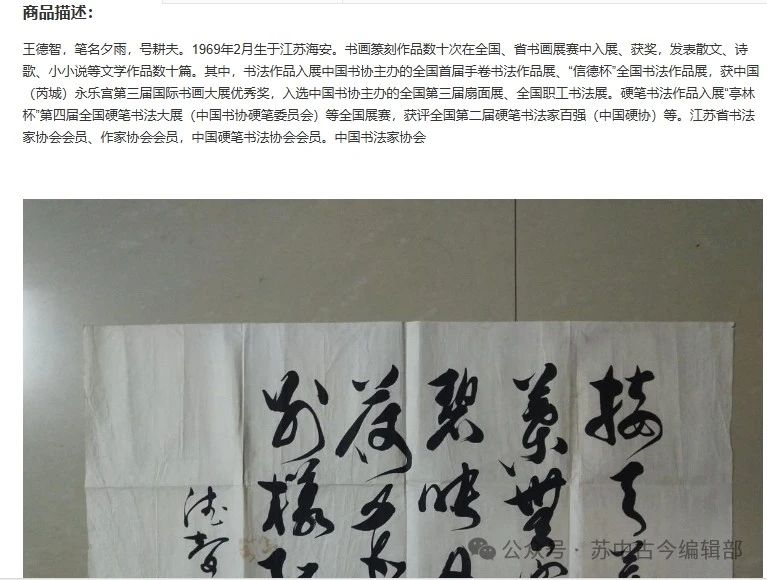 商品描述：
王德智，笔名夕雨，号耕夫。1969年2月生于江苏海安。书画篆刻作品数十次在全国、省书画展赛中入展、获奖，发表散文、诗
歌、小小说等文学作品数十篇。其中，书法作品入展中国书协主办的全国首届手卷书法作品展、“信德杯”全国书法作品展，获中国
（芮城）永乐宫第三届国际书画大展优秀奖，入选中国书协主办的全国第三届扇面展、全国职工书法展。硬笔书法作品入展“亭林
杯”第四届全国硬笔书法大展（中国书协硬笔委员会）等全国展赛，获评全国第二届硬笔书法家百强（中国硬协）等。江苏省书法
家协会会员、作家协会会员，中国硬笔书法协会会员。中国书法家协会
接天
葉無
碧映日
荷花
别樣红
德智
公众号 · 苏中古今编辑部